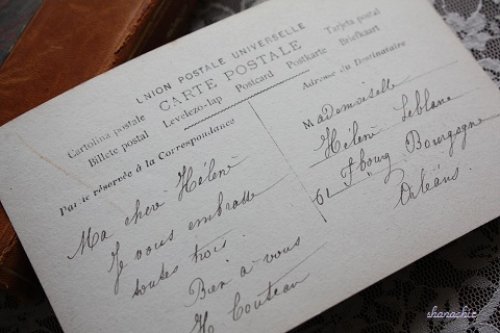 UNION POSTALE UNIVERSELLE
CARTE POSTALE
Cartolina postale Levelezo-lap Postcard Postkarte Briefkaart Tarjeta postal
Billete postal
Partie réservée à la Correspondance
Ma cher Hélène
Je vous embrasse
toutes trois.
Bien à vous
H Couteau
Adresse du Destinataire
Mademoiselle
Hélène Leblanc
61 Fbourg Bourgogne
Orléans.
shanachie